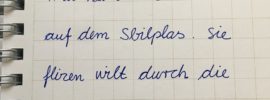 auf dem Sbilplas. Sie
flizen wilt durch die